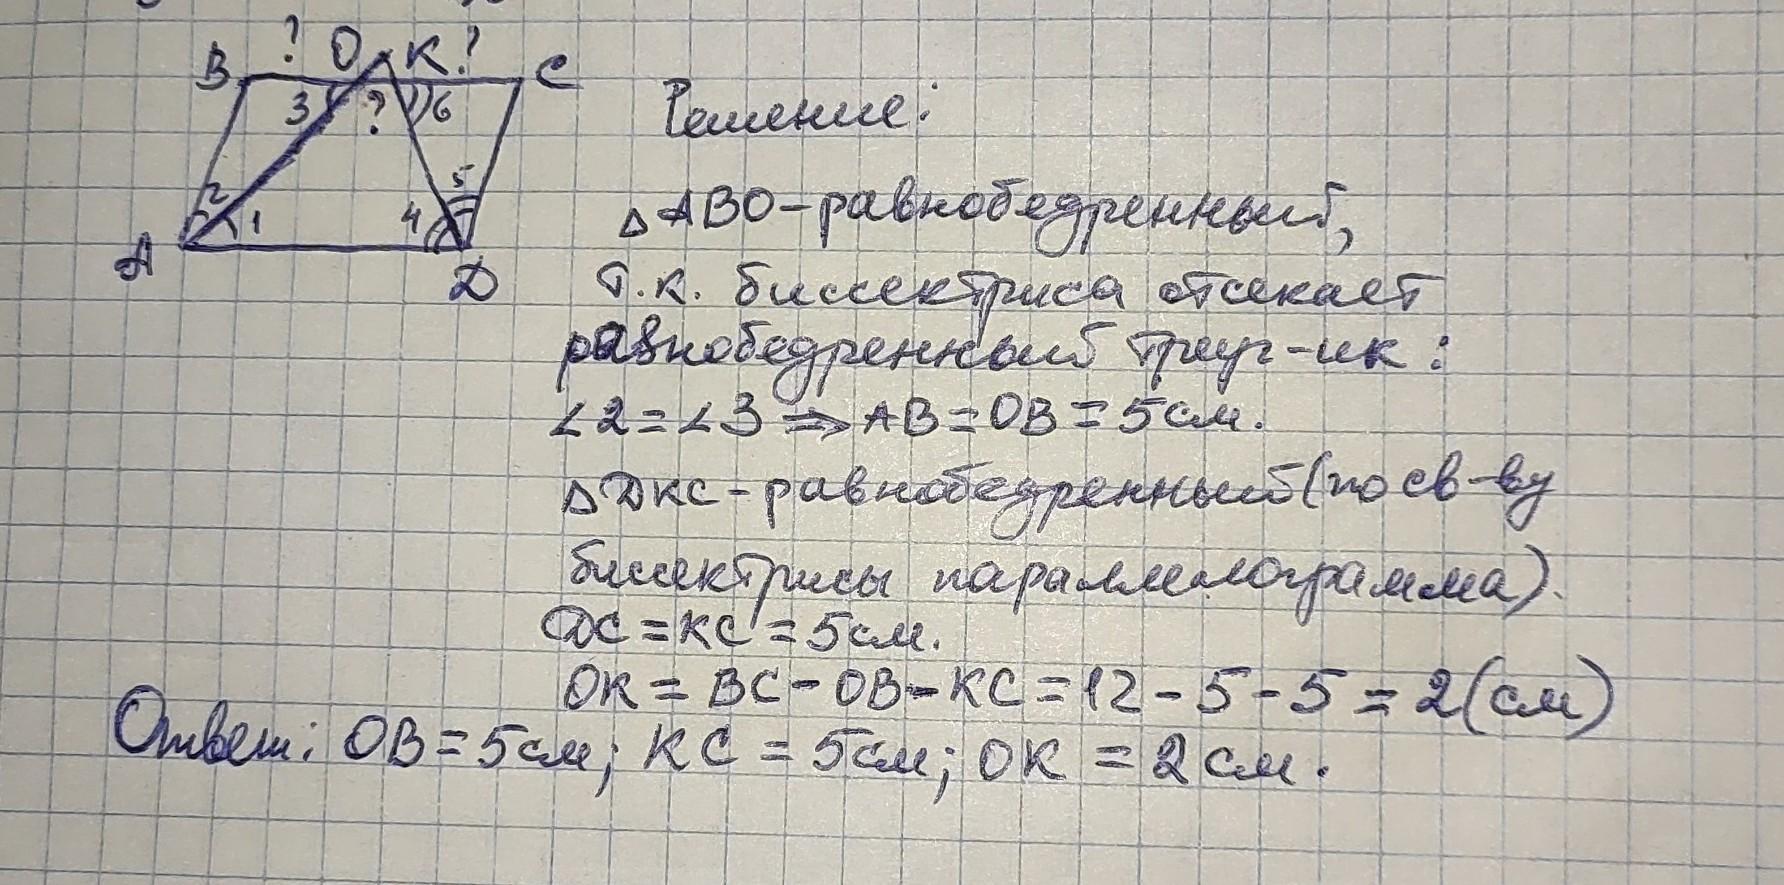 ? O K ?
B C
3 ? 6
2 1 4 5
A D
Решение:
△ABO - равнобедренный,
т.к. биссектриса отсекает
равнобедренный треуг-ик:
∠2=∠3 ⇒ AB=OB=5см.
△DKC - равнобедренный (по св-ву
биссектрисы параллелограмма).
DC=KC=5см.
OK = BC - OB - KC = 12 - 5 - 5 = 2(см)
Ответ: OB=5см; KC=5см; OK=2см.